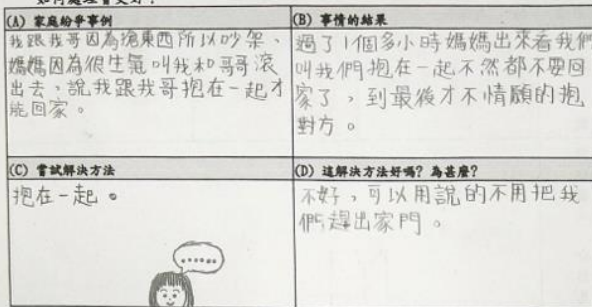 (A) 家庭紛爭事例
我跟我哥因為搶東西所以吵架、
媽媽因為很生氣叫我和哥哥滾
出去，說我跟我哥抱在一起才
能回家。
(B) 事情的結果
過了1個多小時媽媽出來看我們
叫我們抱在一起不然都不要回
家了，到最後才不情願的抱
對方。
(C) 嘗試解決方法
抱在一起。
......
(D) 這解決方法好嗎？為甚麼？
不好，可以用說的不用把我
們趕出家門。